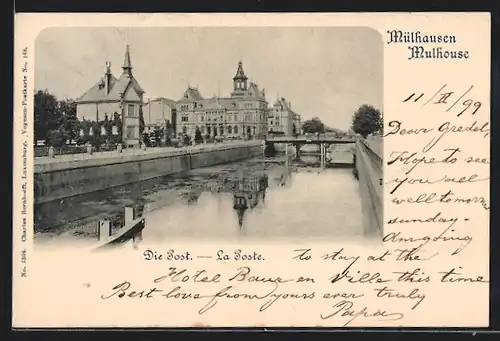 Mülhausen
Mulhouse
11/XI/99
Dear Gredel,
Hope to see
you all
well tomorrow
sunday-
Am going
to stay at the
Hotel Baur en Ville this time
Best love from yours ever truly
Papa
Die Post. — La Poste.
No. 1394. Charles Bernhoeft, Luxemburg. Vogesen-Postkarte No. 168.